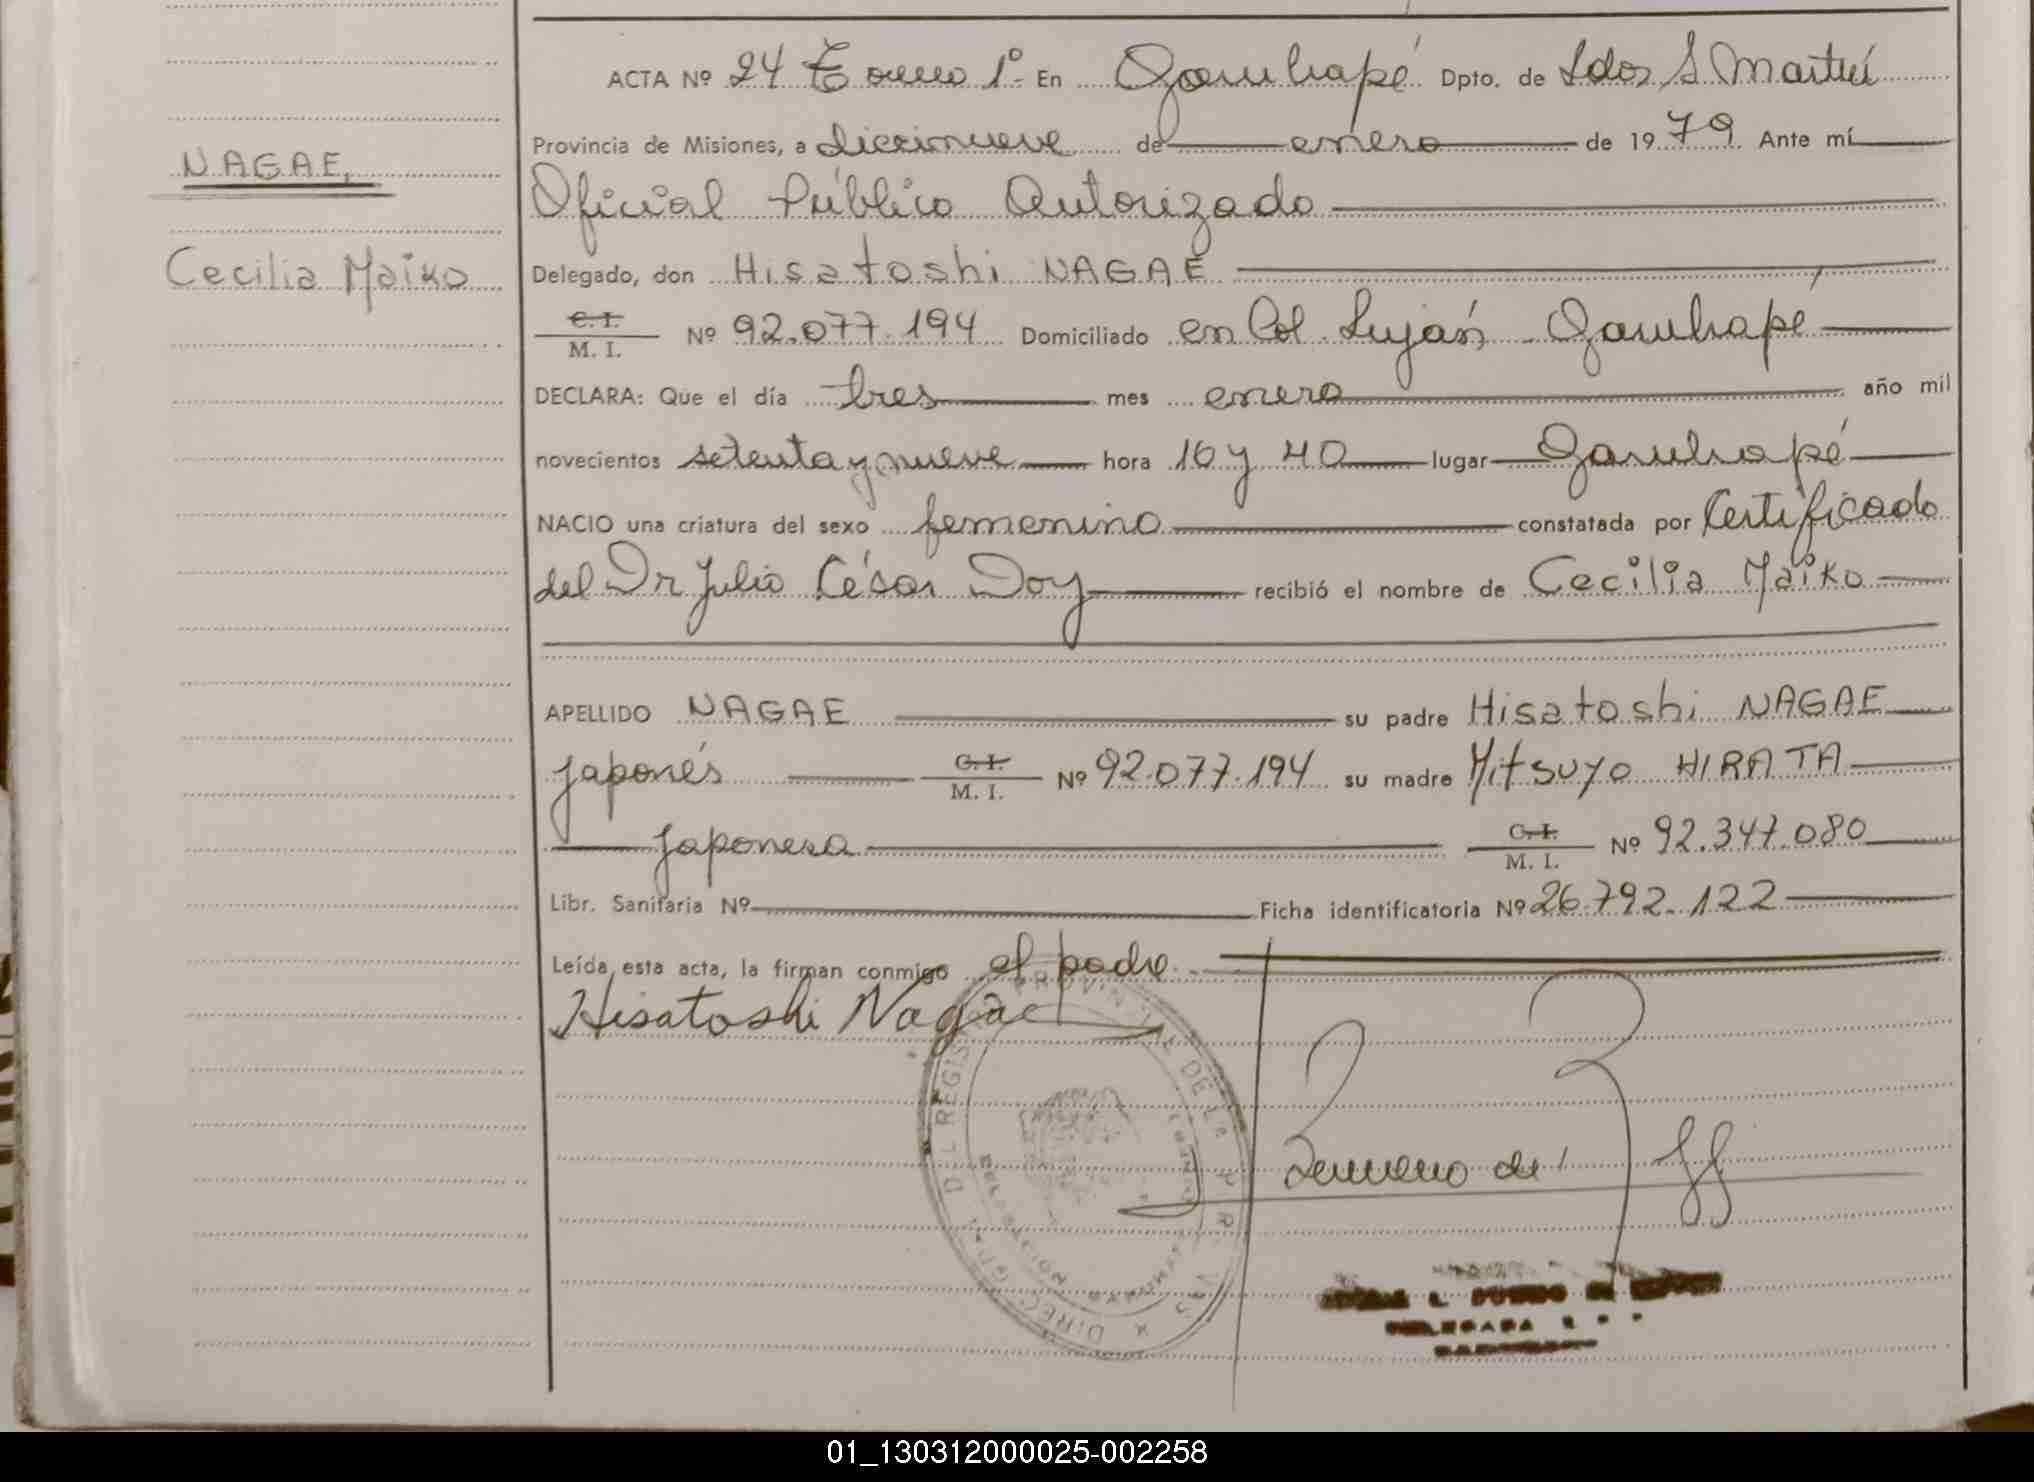 ACTA Nº 24 Tomo 1º En Garuhapé Dpto. de Ldor S Martín
Provincia de Misiones, a diecinueve de enero de 1979. Ante mí
Oficial Público Autorizado
Delegado, don Hisatoshi NAGAE
C. I.
M. I. Nº 92.077.194 Domiciliado en Col. Luján Garuhapé
DECLARA: Que el día tres mes enero año mil
novecientos setenta y nueve hora 16 y 40 lugar Garuhapé
NACIO una criatura del sexo femenino constatada por Certificado
del Dr Julio César Doy recibió el nombre de Cecilia Maiko
APELLIDO NAGAE su padre Hisatoshi NAGAE
japonés C. I.
M. I. Nº 92.077.194 su madre Mitsuyo HIRATA
japonesa C. I.
M. I. Nº 92.347.080
Libr. Sanitaria Nº Ficha identificatoria Nº 26.792.122
Leída esta acta, la firman conmigo el padre
Hisatoshi Nagae
NAGAE,
Cecilia Maiko
01_130312000025-002258